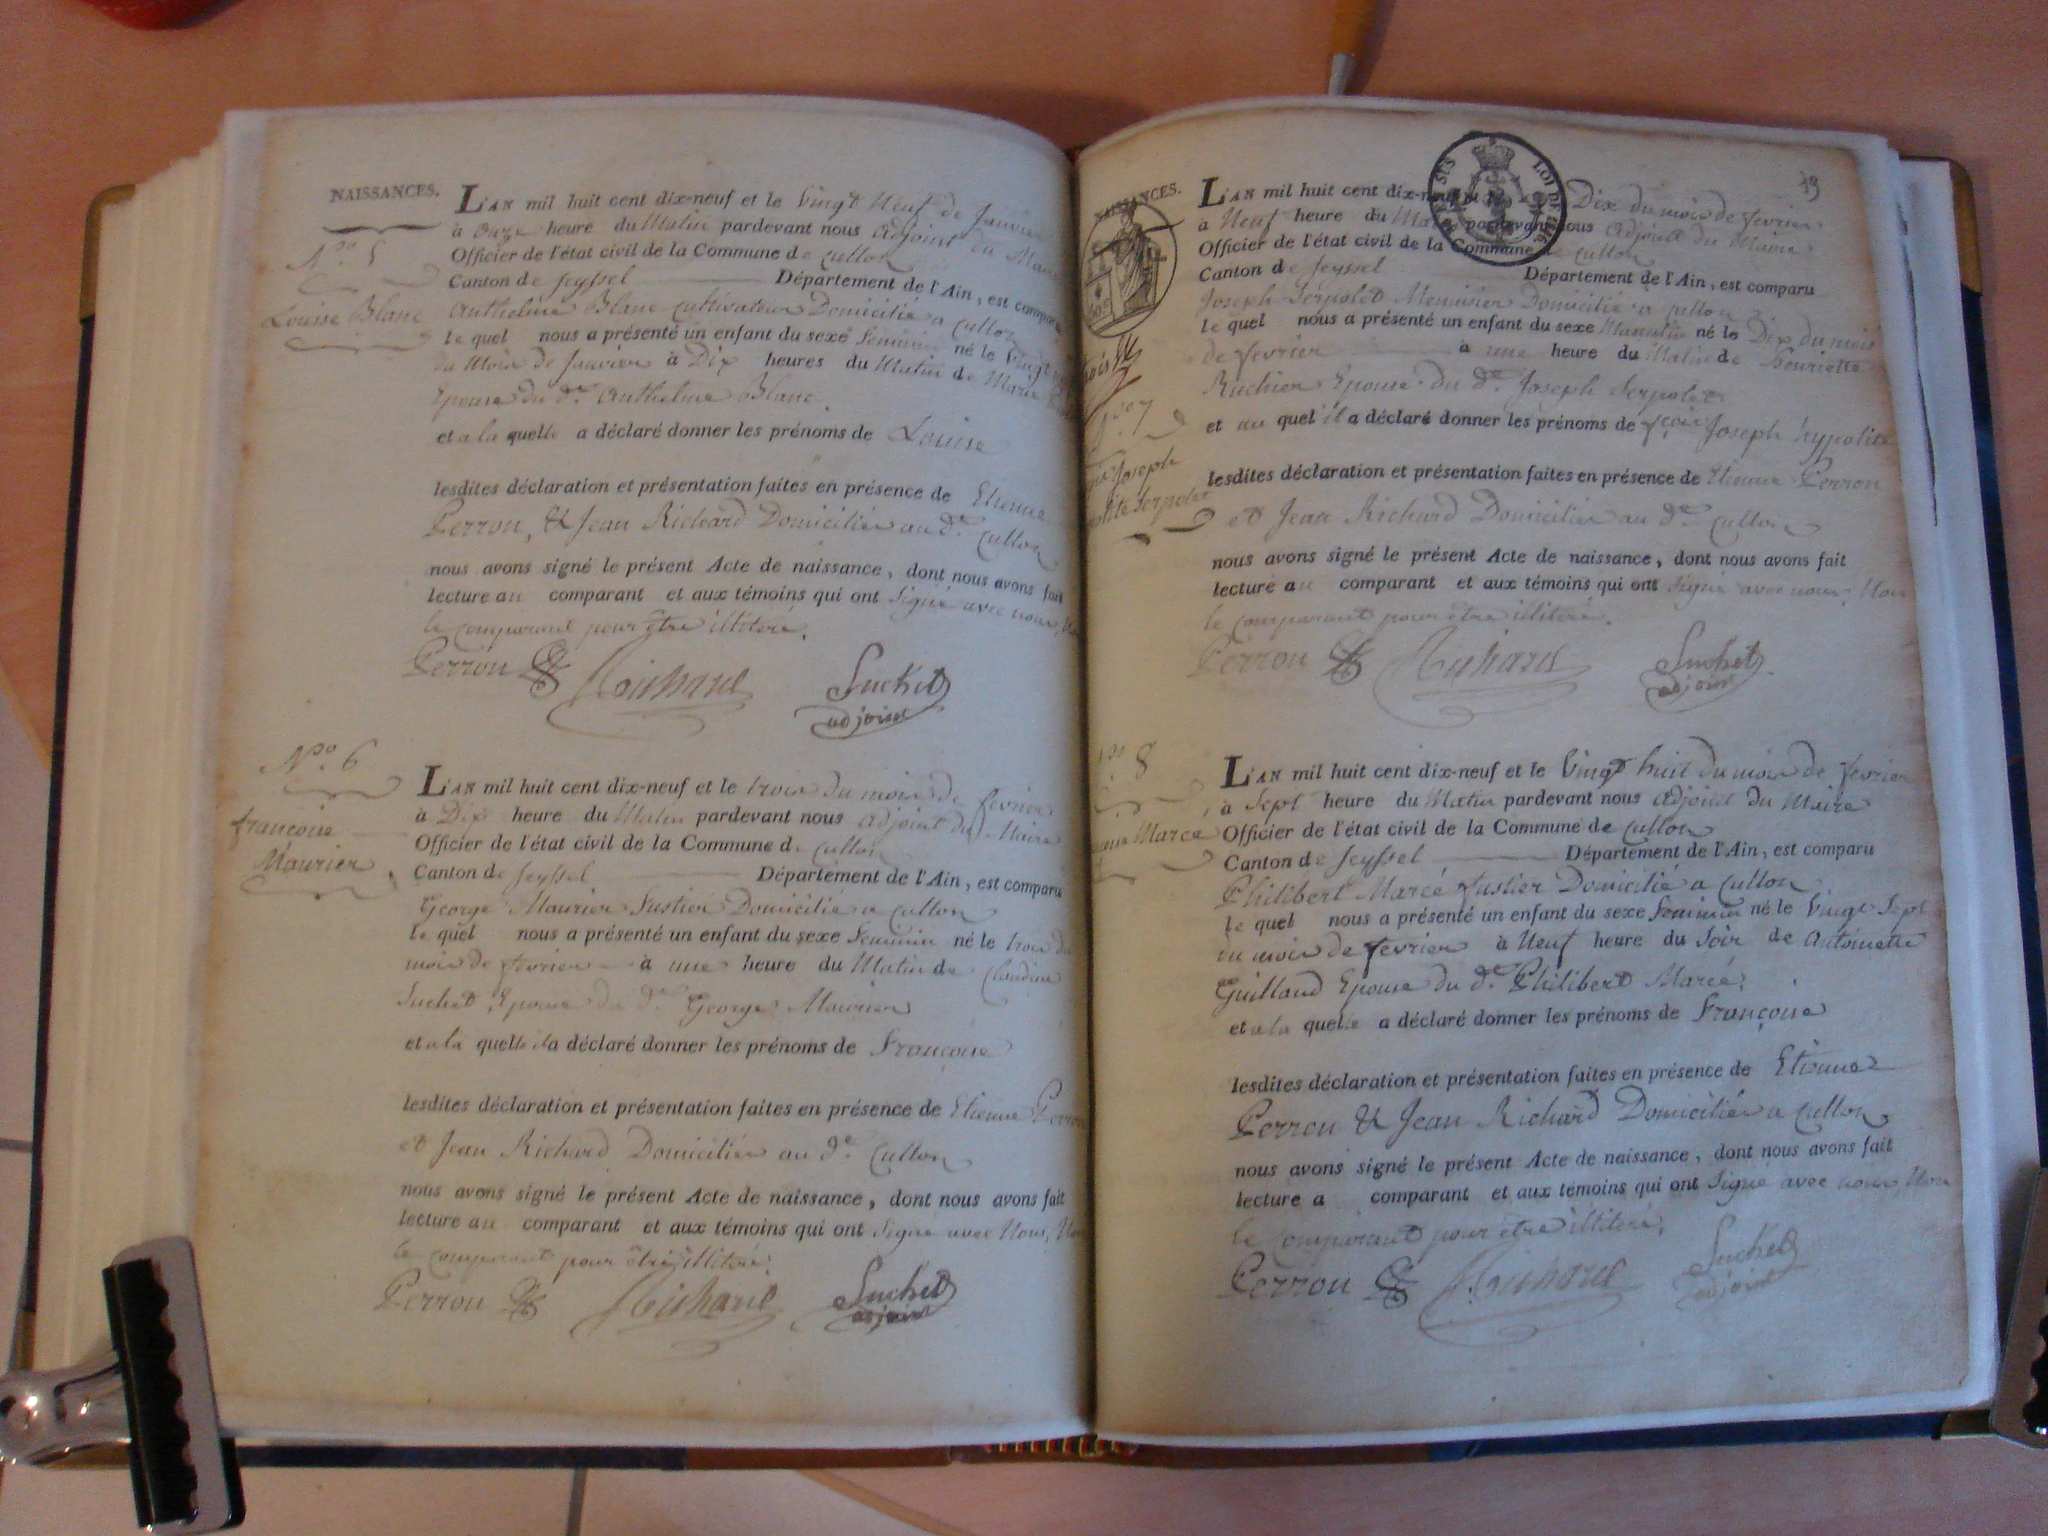 NAISSANCES.
L'AN mil huit cent dix-neuf et le Vingt Neuf de Janvier
à Onze heure du Matin pardevant nous adjoint du Maire
N.ro 5
Officier de l'état civil de la Commune de Culloz
Canton de Seyssel Département de l'Ain, est comparu
Louise Blanc
Anthelme Blanc Cultivateur Domicilié a Culloz
le quel nous a présenté un enfant du sexe Feminin né le Vingt
du Mois de Janvier à Dix heures du Matin de Marie
Epouse du d.t Anthelme Blanc
et a la quelle a déclaré donner les prénoms de Louise
lesdites déclaration et présentation faites en présence de Etienne
Perron, & Jean Richard Domiciliés au d.t Culloz
nous avons signé le présent Acte de naissance, dont nous avons fait
lecture au comparant et aux témoins qui ont Signé avec nous,
le comparant pour être illiteré.
Perron Richard Suchet
adjoint
N.ro 6
françoise
Maurier
L'AN mil huit cent dix-neuf et le trois du mois de fevrier
à Dix heure du Matin pardevant nous adjoint du Maire
Officier de l'état civil de la Commune de Culloz
Canton de Seyssel Département de l'Ain, est comparu
George Maurier Fustier Domicilié a Culloz
le quel nous a présenté un enfant du sexe Feminin né le trois du
mois de fevrier à une heure du Matin de Claudine
Suchet Epouse du d.t George Maurier
et a la quelle il a déclaré donner les prénoms de Françoise
lesdites déclaration et présentation faites en présence de Etienne Perron
et Jean Richard Domiciliés au d.t Culloz
nous avons signé le présent Acte de naissance, dont nous avons fait
lecture au comparant et aux témoins qui ont Signé avec Nous, Non
le comparant pour être illiteré.
Perron Richard Suchet
adjoint
19
NAISSANCES.
LOI DE
L'AN mil huit cent dix-neuf Dix du mois de fevrier
à Neuf heure du Matin pardevant nous adjoint du Maire
Officier de l'état civil de la Commune de Culloz
Canton de Seyssel Département de l'Ain, est comparu
Joseph Serpolet Meunier Domicilié a
le quel nous a présenté un enfant du sexe Masculin né le Dix du mois
de fevrier à une heure du Matin de Henriette
Epouse du d.t Joseph Serpolet
N.ro 7
et au quel il a déclaré donner les prénoms de Joseph hypolite
Joseph
Serpolet
lesdites déclaration et présentation faites en présence de Etienne Perron
et Jean Richard Domiciliés au d.t Culloz
nous avons signé le présent Acte de naissance, dont nous avons fait
lecture au comparant et aux témoins qui ont Signé avec nous, Non
le comparant pour être illiteré.
Perron Richard Suchet
adjoint
8
Marcé
L'AN mil huit cent dix-neuf et le Vingt huit du mois de fevrier
à Sept heure du Matin pardevant nous adjoint du Maire
Officier de l'état civil de la Commune de Culloz
Canton de Seyssel Département de l'Ain, est comparu
Philibert Marcé Fustier Domicilié a Culloz
le quel nous a présenté un enfant du sexe Feminin né le Vingt Sept
du mois de fevrier à Neuf heure du Soir de Antoinette
Guilland Epouse du d.t Philibert Marcé,
et a la quelle a déclaré donner les prénoms de Françoise
lesdites déclaration et présentation faites en présence de Etienne
Perron & Jean Richard Domiciliés a Culloz
nous avons signé le présent Acte de naissance, dont nous avons fait
lecture a comparant et aux témoins qui ont Signé avec nous, Non
le comparant pour être illiteré.
Perron Richard Suchet
adjoint